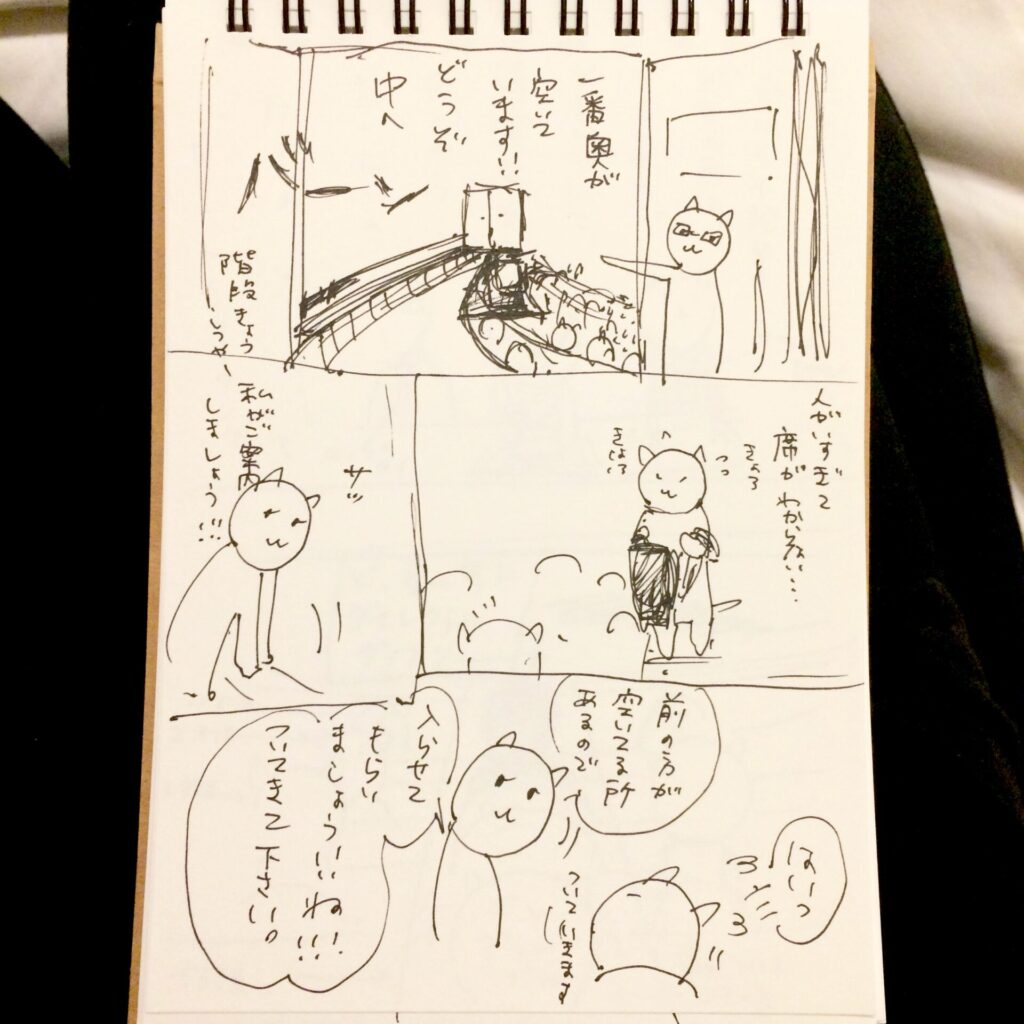 一番奥が
空いて
います!!
どうぞ
中へ
人がいすぎて
席がわからない…
きょろ
きょろ
サッ
私がご案内
しましょう!!!
階段きょう
前の方が
空いてる所
あるので
入らせて
もらい
ましょういいね!!!
ついてきて下さい。
はいっ
ついていきます